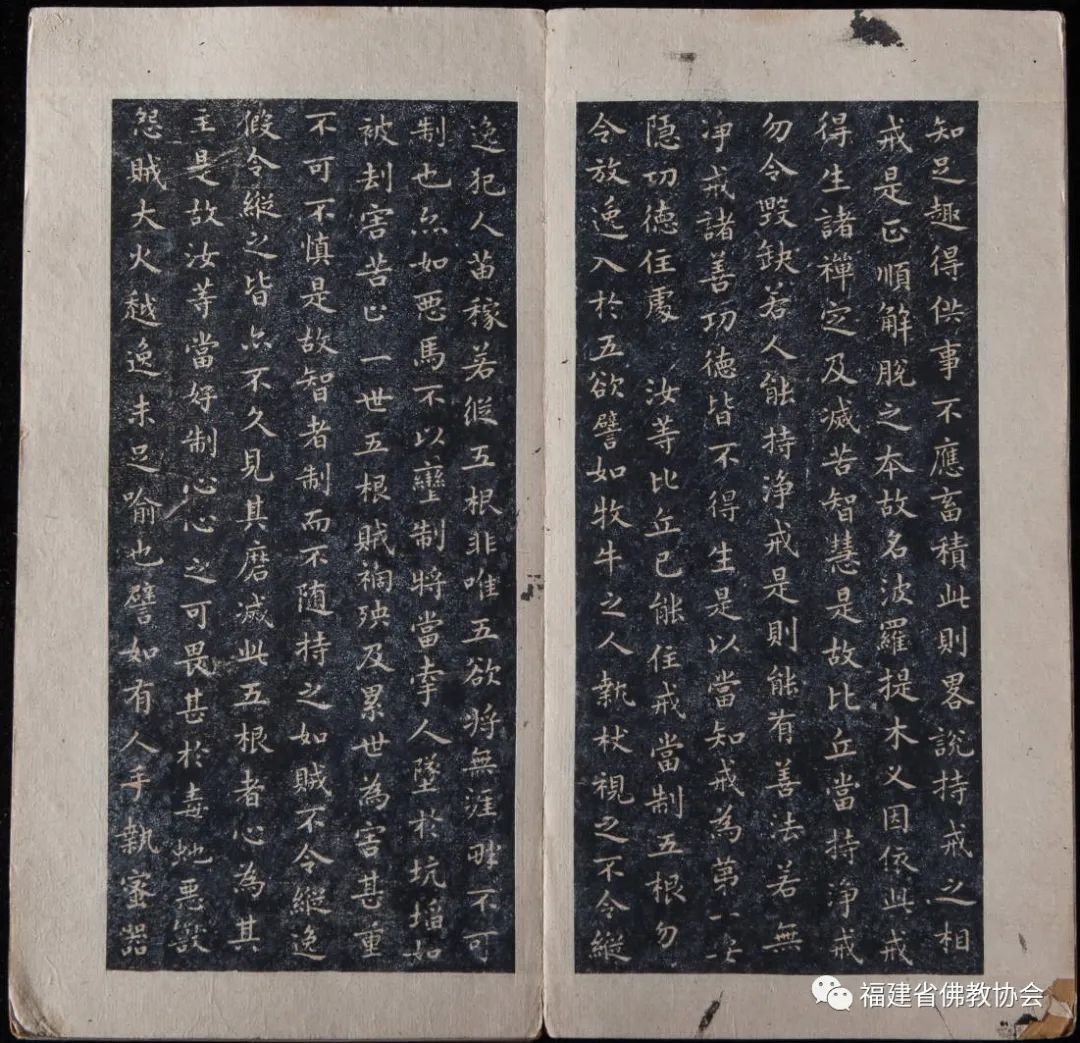 知足趣得供事不應畜積此則畧說持戒之相
戒是正順解脫之本故名波羅提木叉因依此戒
得生諸禪定及滅苦智慧是故比丘當持淨戒
勿令毀缺若人能持淨戒是則能有善法若無
淨戒諸善功德皆不得生是以當知戒為第一安
隱功德住處 汝等比丘已能住戒當制五根勿
令放逸入於五欲譬如牧牛之人執杖視之不令縱
逸犯人苗稼若縱五根非唯五欲將無涯畔不可
制也亦如惡馬不以轡制將當牽人墜於坑埳如
被劫害苦止一世五根賊禍殃及累世為害甚重
不可不慎是故智者制而不随持之如賊不令縱逸
假令縱之皆亦不久見其磨滅此五根者心為其
主是故汝等當好制心心之可畏甚於毒虵惡獸
怨賊大火越逸未足喻也譬如有人手執蜜器
福建省佛教协会